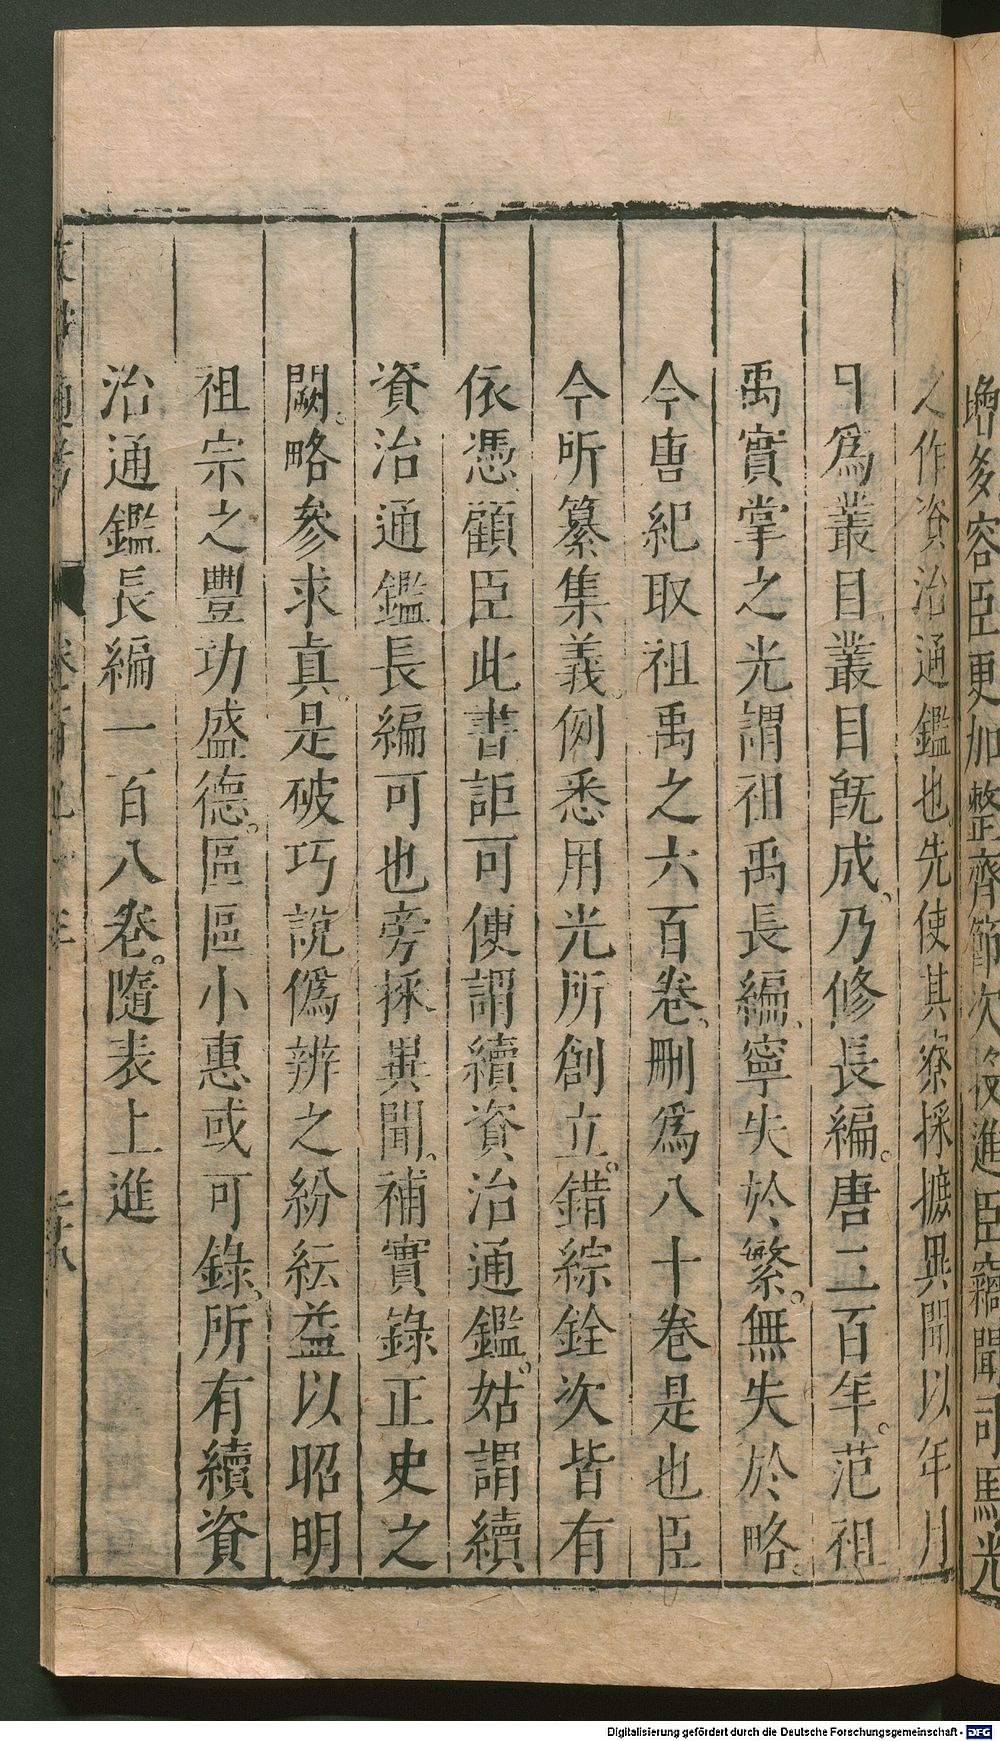 增多容臣更加整齊節次後進臣竊聞司馬光
之作資治通鑑也。先使其寮採摭異聞以年月
日爲叢目叢目旣成、乃修長編。唐三百年。范祖
禹實掌之光謂祖禹長編、寧失於繁。無失於略。
今唐紀取祖禹之六百卷、刪爲八十卷是也臣
今所纂集義。例悉用光所創立。錯綜銓次皆有
依憑顧臣此書詎可便謂續資治通鑑。姑謂續
資治通鑑長編可也旁採異聞。補實錄正史之
闕。略參求眞。是破巧說僞辨之紛紜益以昭明
祖宗之豐功盛德。區區小惠或可錄、所有續資
治通鑑長編一百八卷。隨表上進
通考